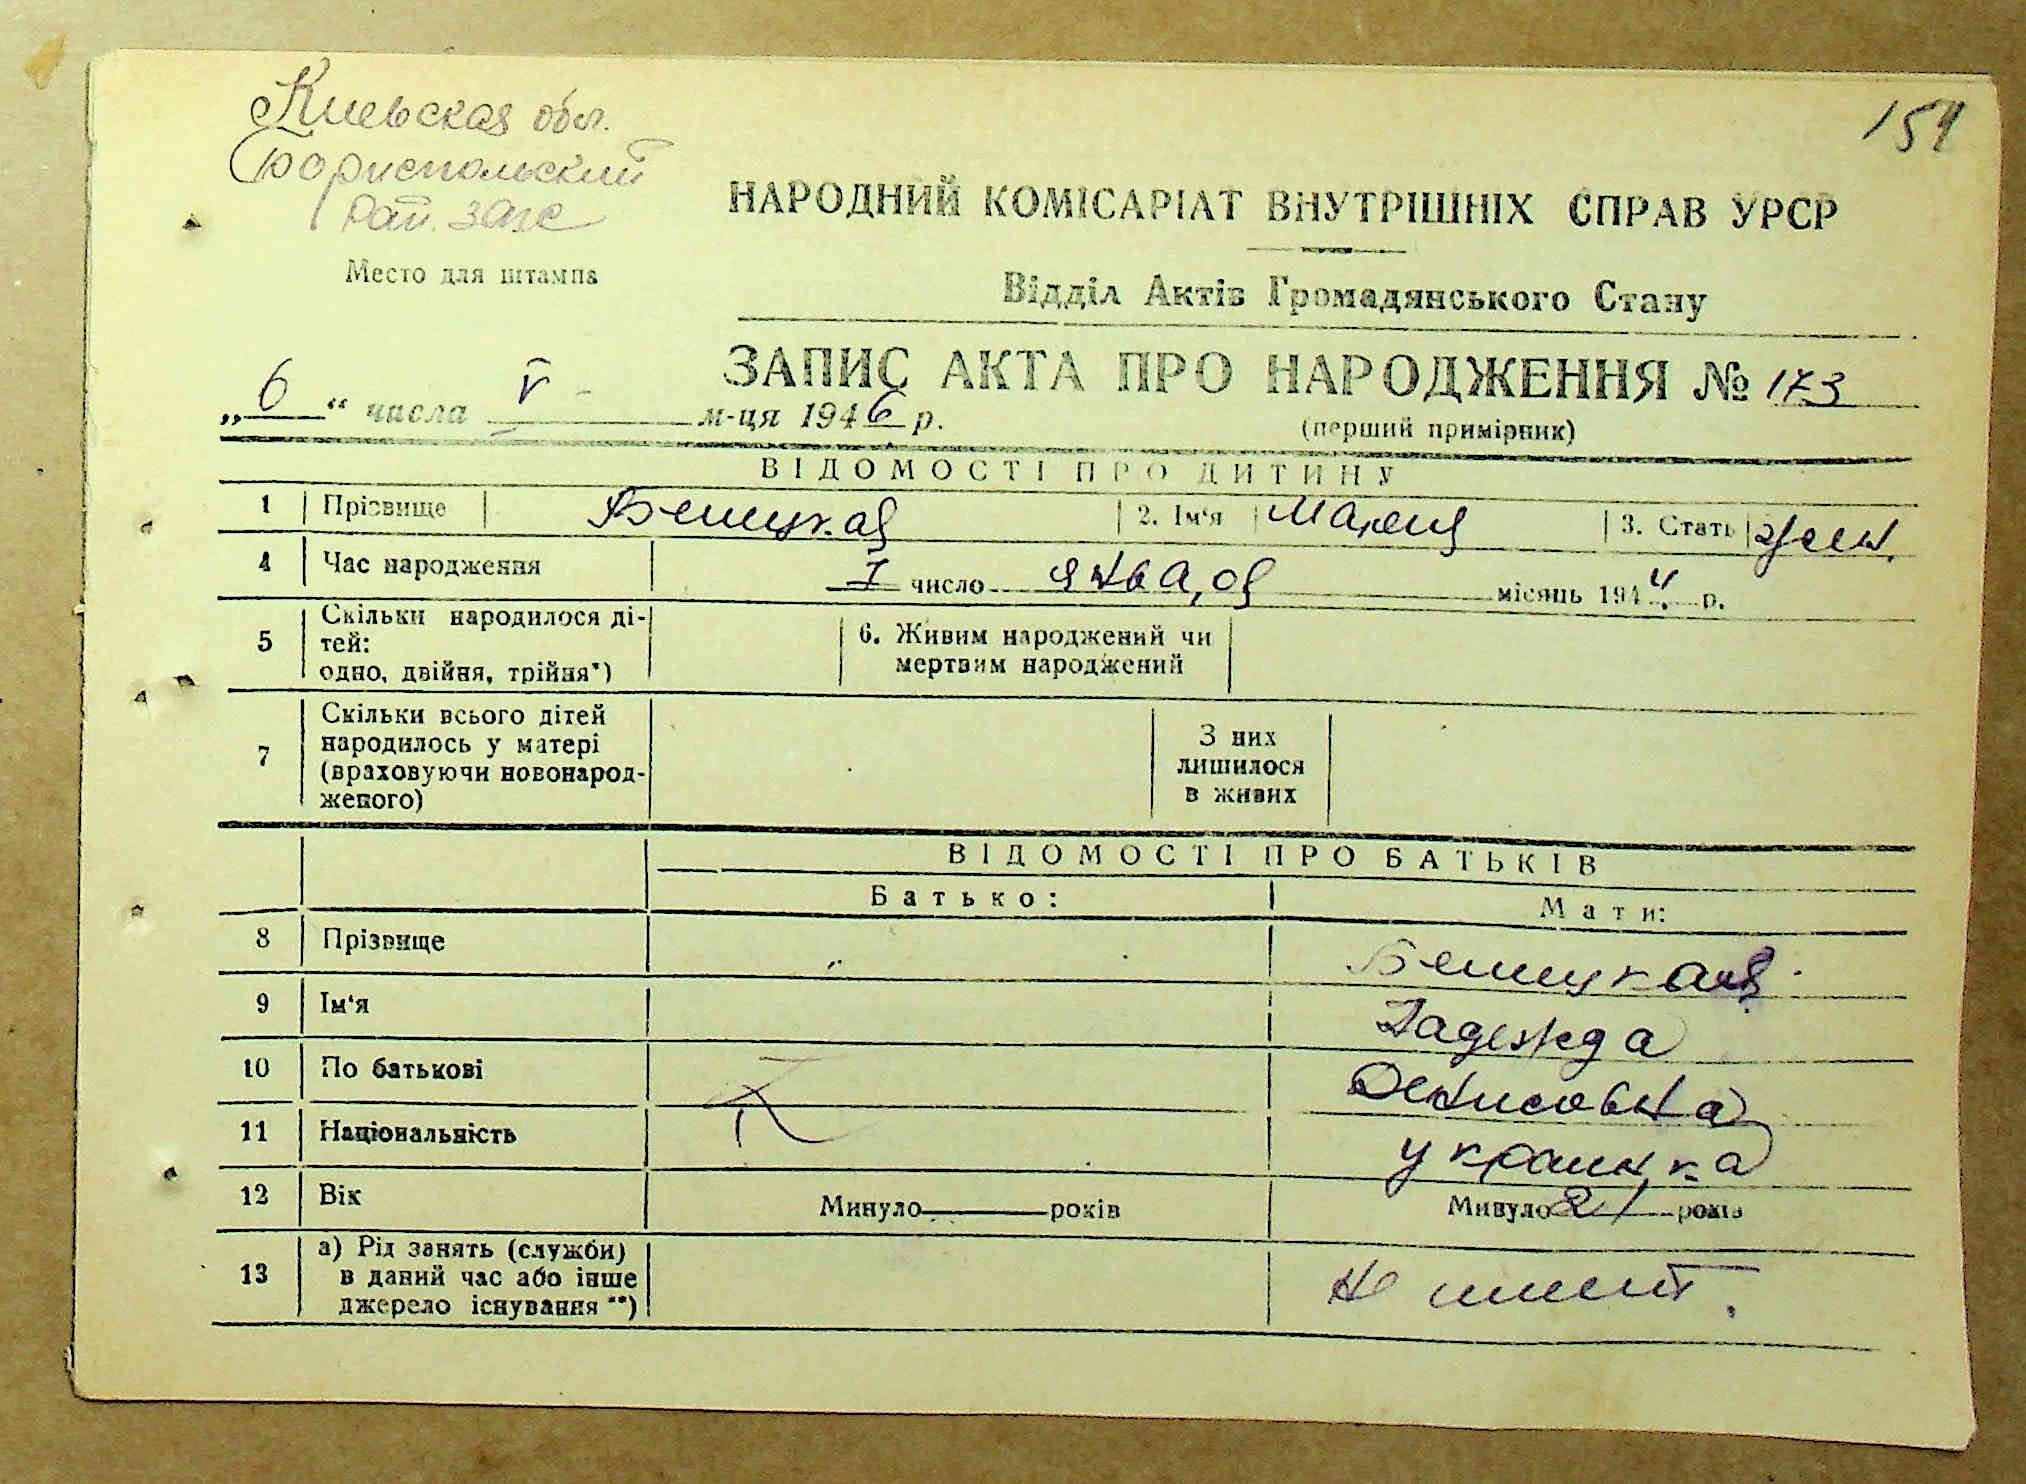 Киевская обл.
Бориспольский
Рай. загс
154
НАРОДНИЙ КОМІСАРІАТ ВНУТРІШНІХ СПРАВ УРСР
Место для штампа
Відділ Актів Громадянського Стану
ЗАПИС АКТА ПРО НАРОДЖЕННЯ № 173
„6“ числа V м-ця 1946 р.
(перший примірник)
ВІДОМОСТІ ПРО ДИТИНУ
1 Прізвище 2. Ім'я Мария 3. Стать жен.
4 Час народження 7 число января місяць 1944 р.
5 Скільки народилося ді-
тей:
одно, двійня, трійня*)
6. Живим народжений чи
мертвим народжений
7 Скільки всього дітей
народилось у матері
(враховуючи новонарод-
женого)
З них
лишилося
в живих
ВІДОМОСТІ ПРО БАТЬКІВ
Батько: Мати:
8 Прізвище
9 Ім'я Надежда
10 По батькові Денисовна
11 Національність украинка
12 Вік Минуло років Минуло 21 років
13 а) Рід занять (служби)
в даний час або інше
джерело існування **)
Не имеет.